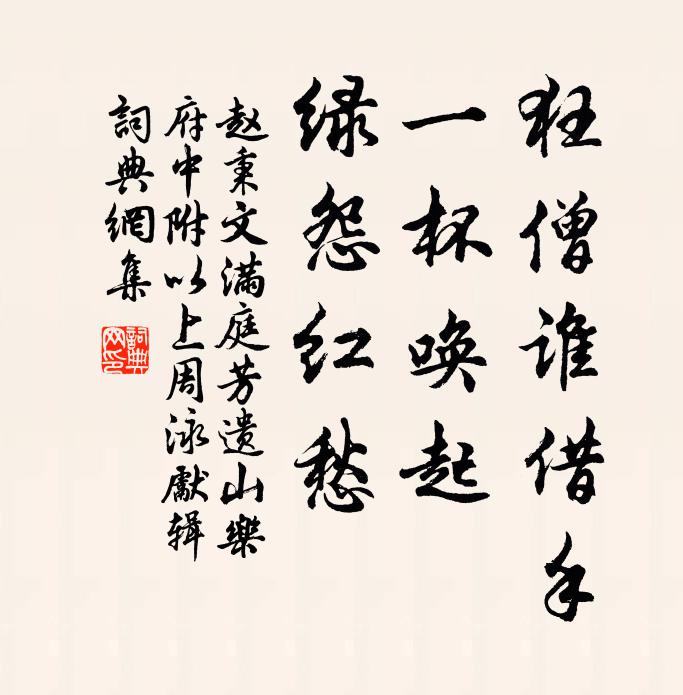 狂僧谁借手
一杯唤起
绿怨红愁
赵秉文满庭芳遗山樂
府中附以上周泳獻辑
詞典網集
詞典
网印